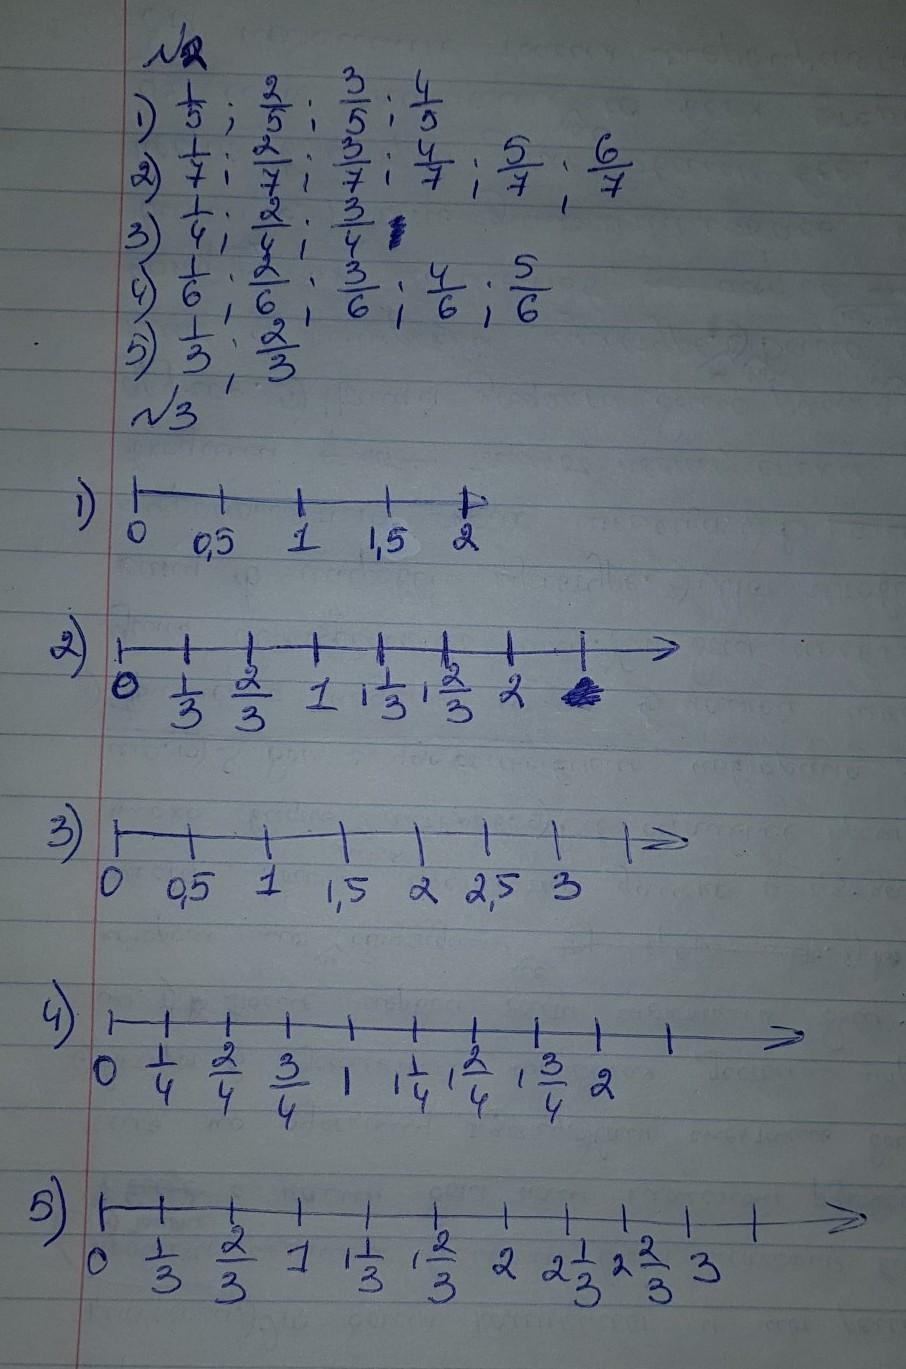 №2
1) 1/5 ; 2/5 ; 3/5 ; 4/5
2) 1/7 ; 2/7 ; 3/7 ; 4/7 ; 5/7 ; 6/7
3) 1/4 ; 2/4 ; 3/4
4) 1/6 ; 2/6 ; 3/6 ; 4/6 ; 5/6
5) 1/3 ; 2/3
№3
1) 0 0,5 1 1,5 2
2) 0 1/3 2/3 1 1 1/3 1 2/3 2
3) 0 0,5 1 1,5 2 2,5 3
4) 0 1/4 2/4 3/4 1 1 1/4 1 2/4 1 3/4 2
5) 0 1/3 2/3 1 1 1/3 1 2/3 2 2 1/3 2 2/3 3